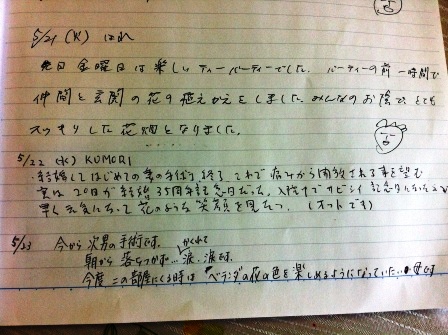 5/21 (火) はれ
先日 金曜日は楽しいティーパーティーでした。パーティーの前 一時間で
仲間と玄関の花の植えかえをしました。みんなのお陰で、とても
スッキリした花畑となりました。
5/22 (水) KUMORI
結婚してはじめての妻の手術 終了 これで痛みから開放される事を望む
実は20日が結婚35周年記念日だった。入院中でサビシイ記念日になった
早く元気になって花のような笑顔を見たい (オットです)
5/23 今から次男の手術です。
朝から 落ちつかず… かくれて 涙、涙です。
今度 この部屋にくる時は ベランダの 色を楽しめるようになっていたい